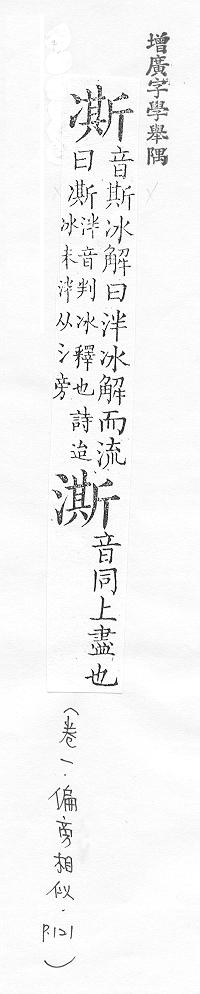 增廣字學舉隅
凘
音斯冰解曰泮冰解而流
曰凘泮音判冰釋也詩迨
冰未泮从冫旁
澌
音同上盡也
（卷一．偏旁相似．P.121）